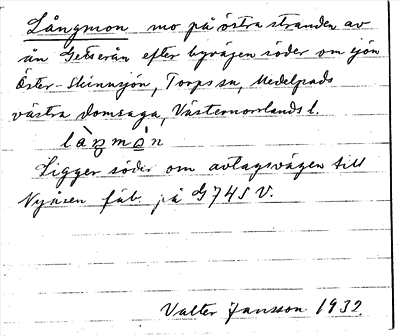 Långmon mo på östra stranden av
ån Getterån efter byvägen söder om sjön
Öster-Skinnsjön, Torps sn, Medelpads
västra domsaga, Västernorrlands l.
làŋmòn
Ligger söder om avtagsvägen till
Nyåsen fäb. på G 745 V.
Valter Jansson 1932.